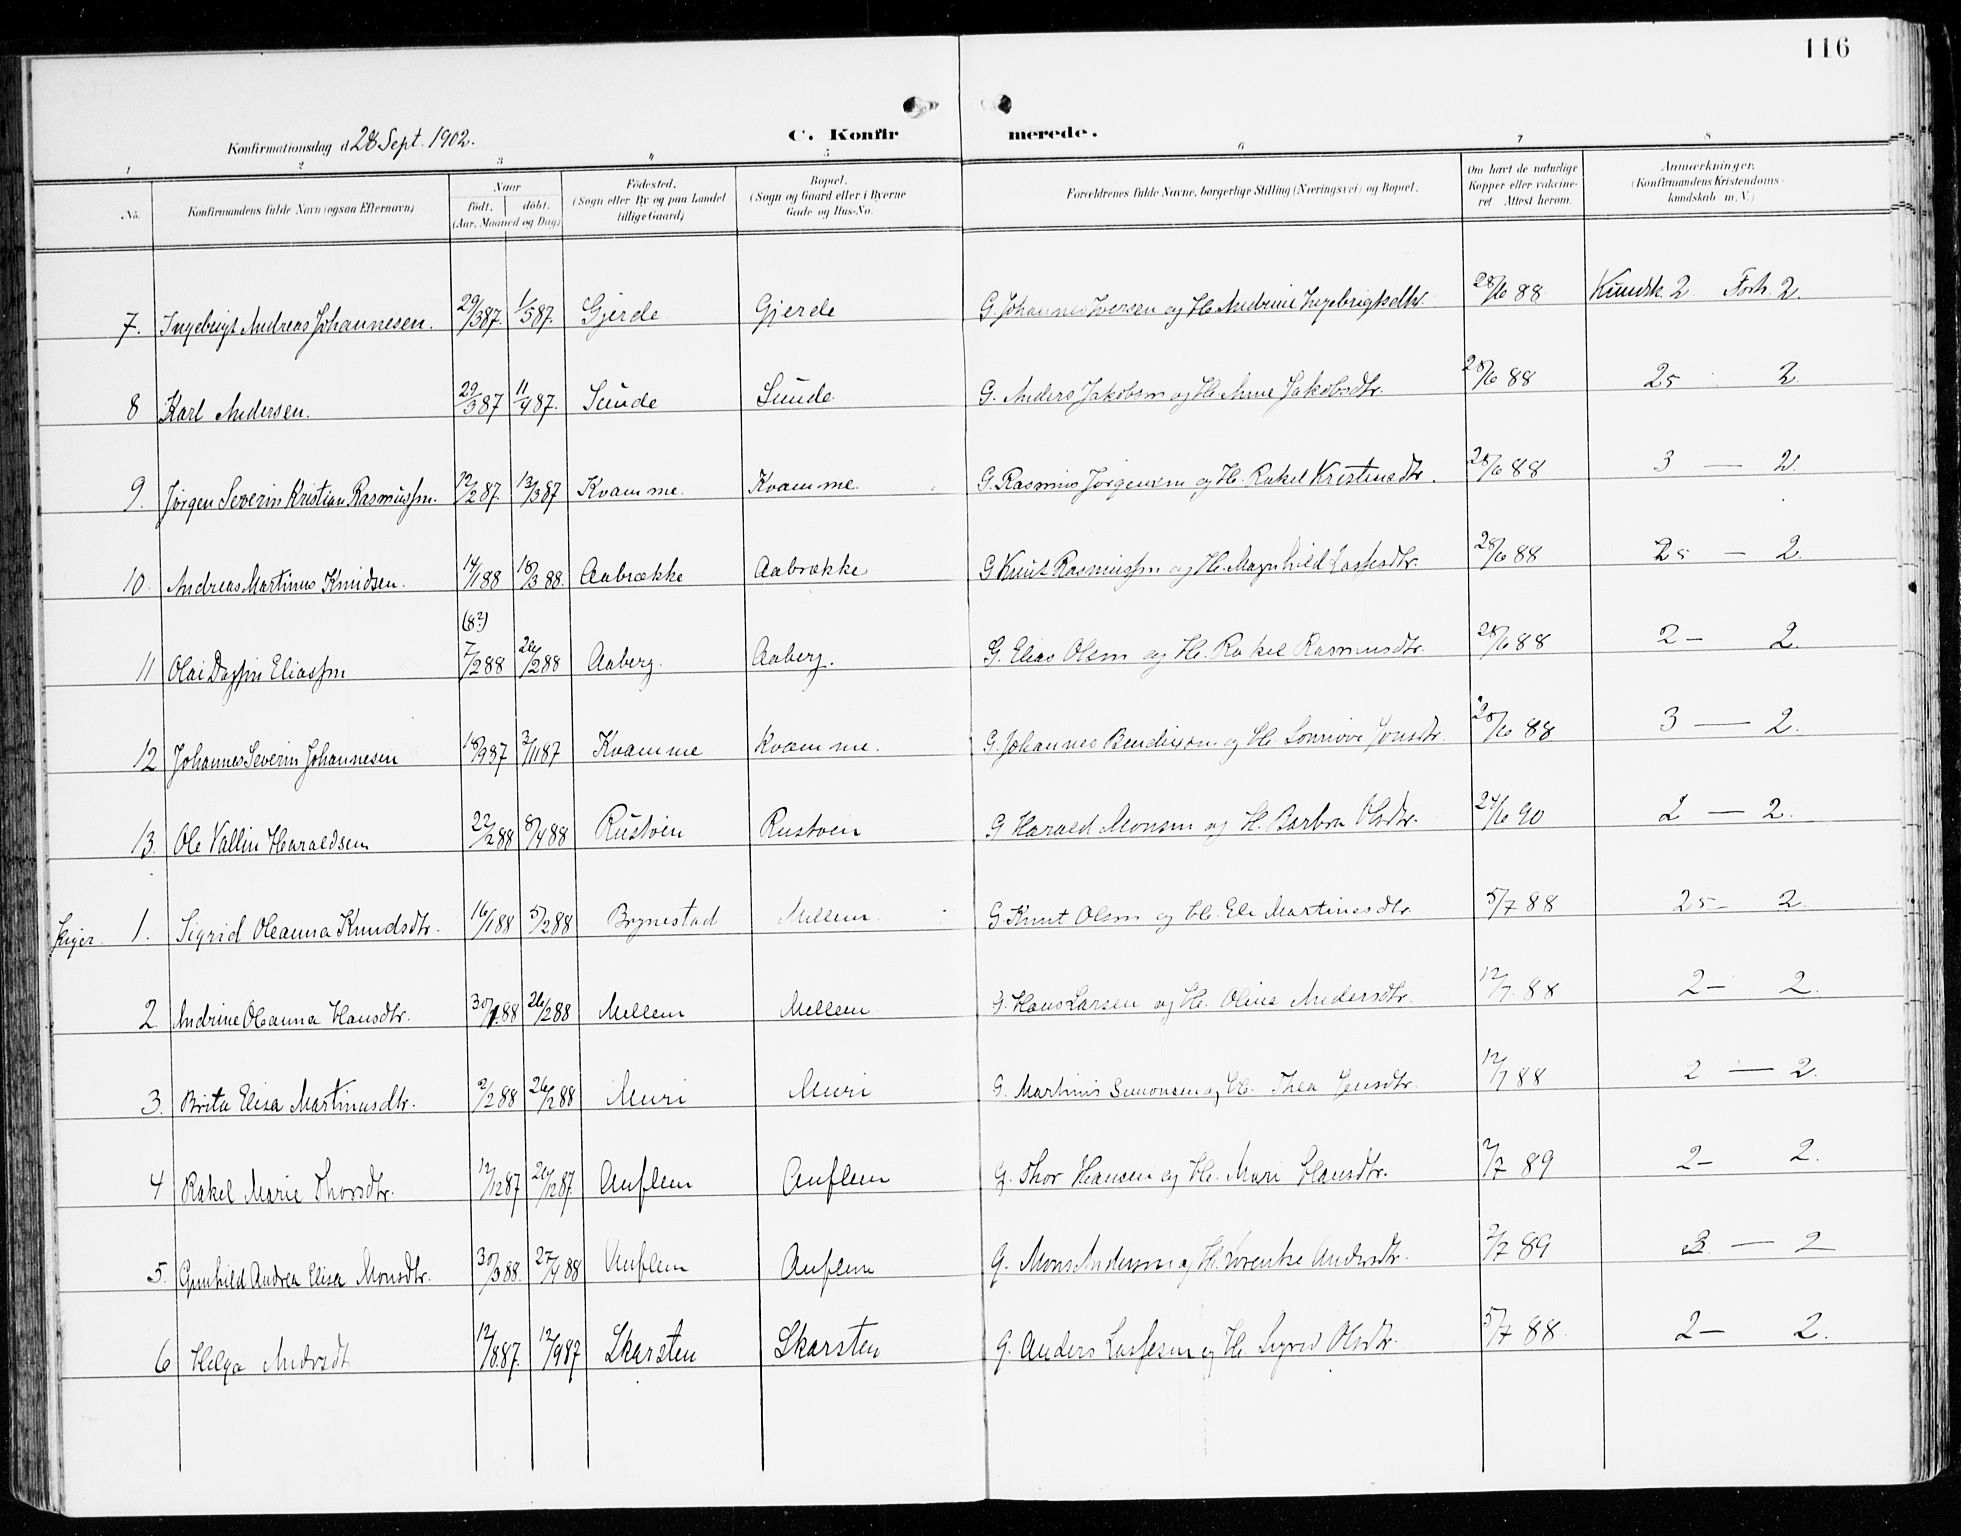 116
Konfirmationsdag d 28 Sept. 1902.
C. Konfir merede.
1 2 3 4 5 6 7 8
No. Konfirmandens fulde Navn (ogsaa Efternavn) Naar født. døbt. (Aar, Maaned og Dag) Fødested. (Sogn eller By og paa Landet tillige Gaard) Bopæl. (Sogn og Gaard eller i Byerne Gade og Hus-No. Forældrenes fulde Navne, borgerlige Stilling (Næringsvei) og Bopæl. Om havt de naturlige Kopper eller vakcineret. Attest herom. Anmærkninger. (Konfirmandens Kristendomskundskab m. V.)
7. Ingebrigt Andreas Johannesen. 29/3 87. 1/5 87. Gjerde Gjerde G. Johannes Iversen og H. Andrine Ingebrigtsdtr. 28/6 88 Kundsk. 2 Forh. 2.
8 Karl Andersen. 29/3 87 11/4 87. Sunde Sunde G. Anders Jakobsen og H. Anne Jakobsdtr. 28/6 88 25 2
9. Jørgen Severin Kristian Rasmussen. 12/2 87. 13/3 87 Kvamme. Kvamme. G. Rasmus Jørgensen og H. Rakel Kristensdtr. 28/6 88 3 — 2
10. Andreas Martinus Knudsen. 14/1 88 18/3 88. Aabrække Aabrække G Knut Rasmussen og H. Magnhild Lassesdtr. 28/6 88 25 — 2.
(8?)
11 Olai Dagfin Eliassen 7/2 88 26/2 88 Aaberg. Aaberg. G. Elias Olsen og H. Rakel Rasmusdtr. 28/6 88 2 — 2.
12 Johannes Severin Johannesen 18/9 87 3/11 87 Kvamme Kvamme. G. Johannes Bendixsen og H. Sonnove Jonsdtr. 28/6 88 3 — 2.
13. Ole Vallin Haraldsen 22/2 88 8/4 88 Rustøen Rustøen G Harald Monsen og H. Barbra Olsdtr. 24/6 90 2 — 2.
Piger. 1. Sigrid Oleanna Knudsdtr. 16/1 88 5/2 88 Brynestad Mellem. G Knut Olsen og H. Eli Martinusdtr. 5/7 88 25 — 2.
2. Andrine Oleanna Hansdtr. 30/1 88 26/2 88 Mellem Mellem. G. Hans Larsen og H. Olina Andersdtr. 12/7. 88 2 — 2.
3. Brita Elisa Martinusdtr. 2/2 88 26/2 88 Muri Muri G. Martinus Simonsen og H. Thea Jensdtr. 12/7 88 2 — 2.
4 Rakel Marie Thorsdtr. 12/12 87 26/12 87. Auflem Auflem G. Thor Hansen og H. Mari Hansdtr. 2/7 89 2 — 2.
5. Gunhild Andrea Elisa Monsdtr. 30/3 88. 27/4 88 Auflem Auflem G. Mons Andersen og H. Lorentse Andersdtr. 2/7 89 3 — 2
6 Helga Andersdt 12/8 87. 12/9 87 Skarsten Skarsten G. Anders Lassesen og H. Sigrid Olsdtr. 5/7 88. 2 — 2.